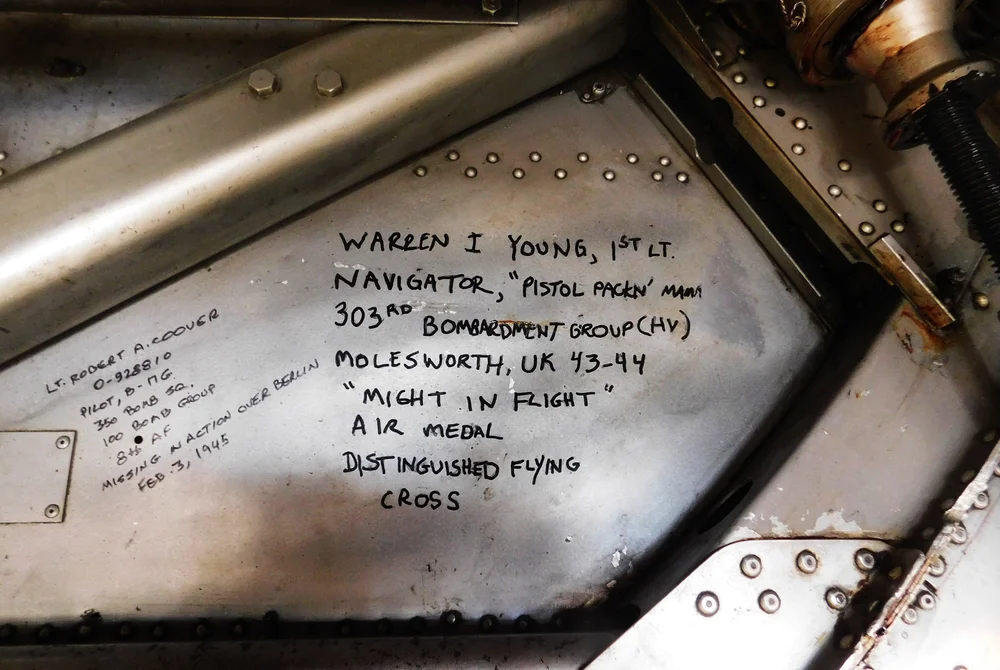 WARREN I YOUNG, 1ST LT.
NAVIGATOR, "PISTOL PACKN' MAMA
303RD BOMBARDMENT GROUP (HV)
MOLESWORTH, UK 43-44
"MIGHT IN FLIGHT"
AIR MEDAL
DISTINGUISHED FLYING
CROSS
LT. ROBERT A. COOVER
O-928810
PILOT, B-17G
350 BOMB SQ.
100 BOMB GROUP
8th AF
MISSING IN ACTION OVER BERLIN
FEB. 3, 1945